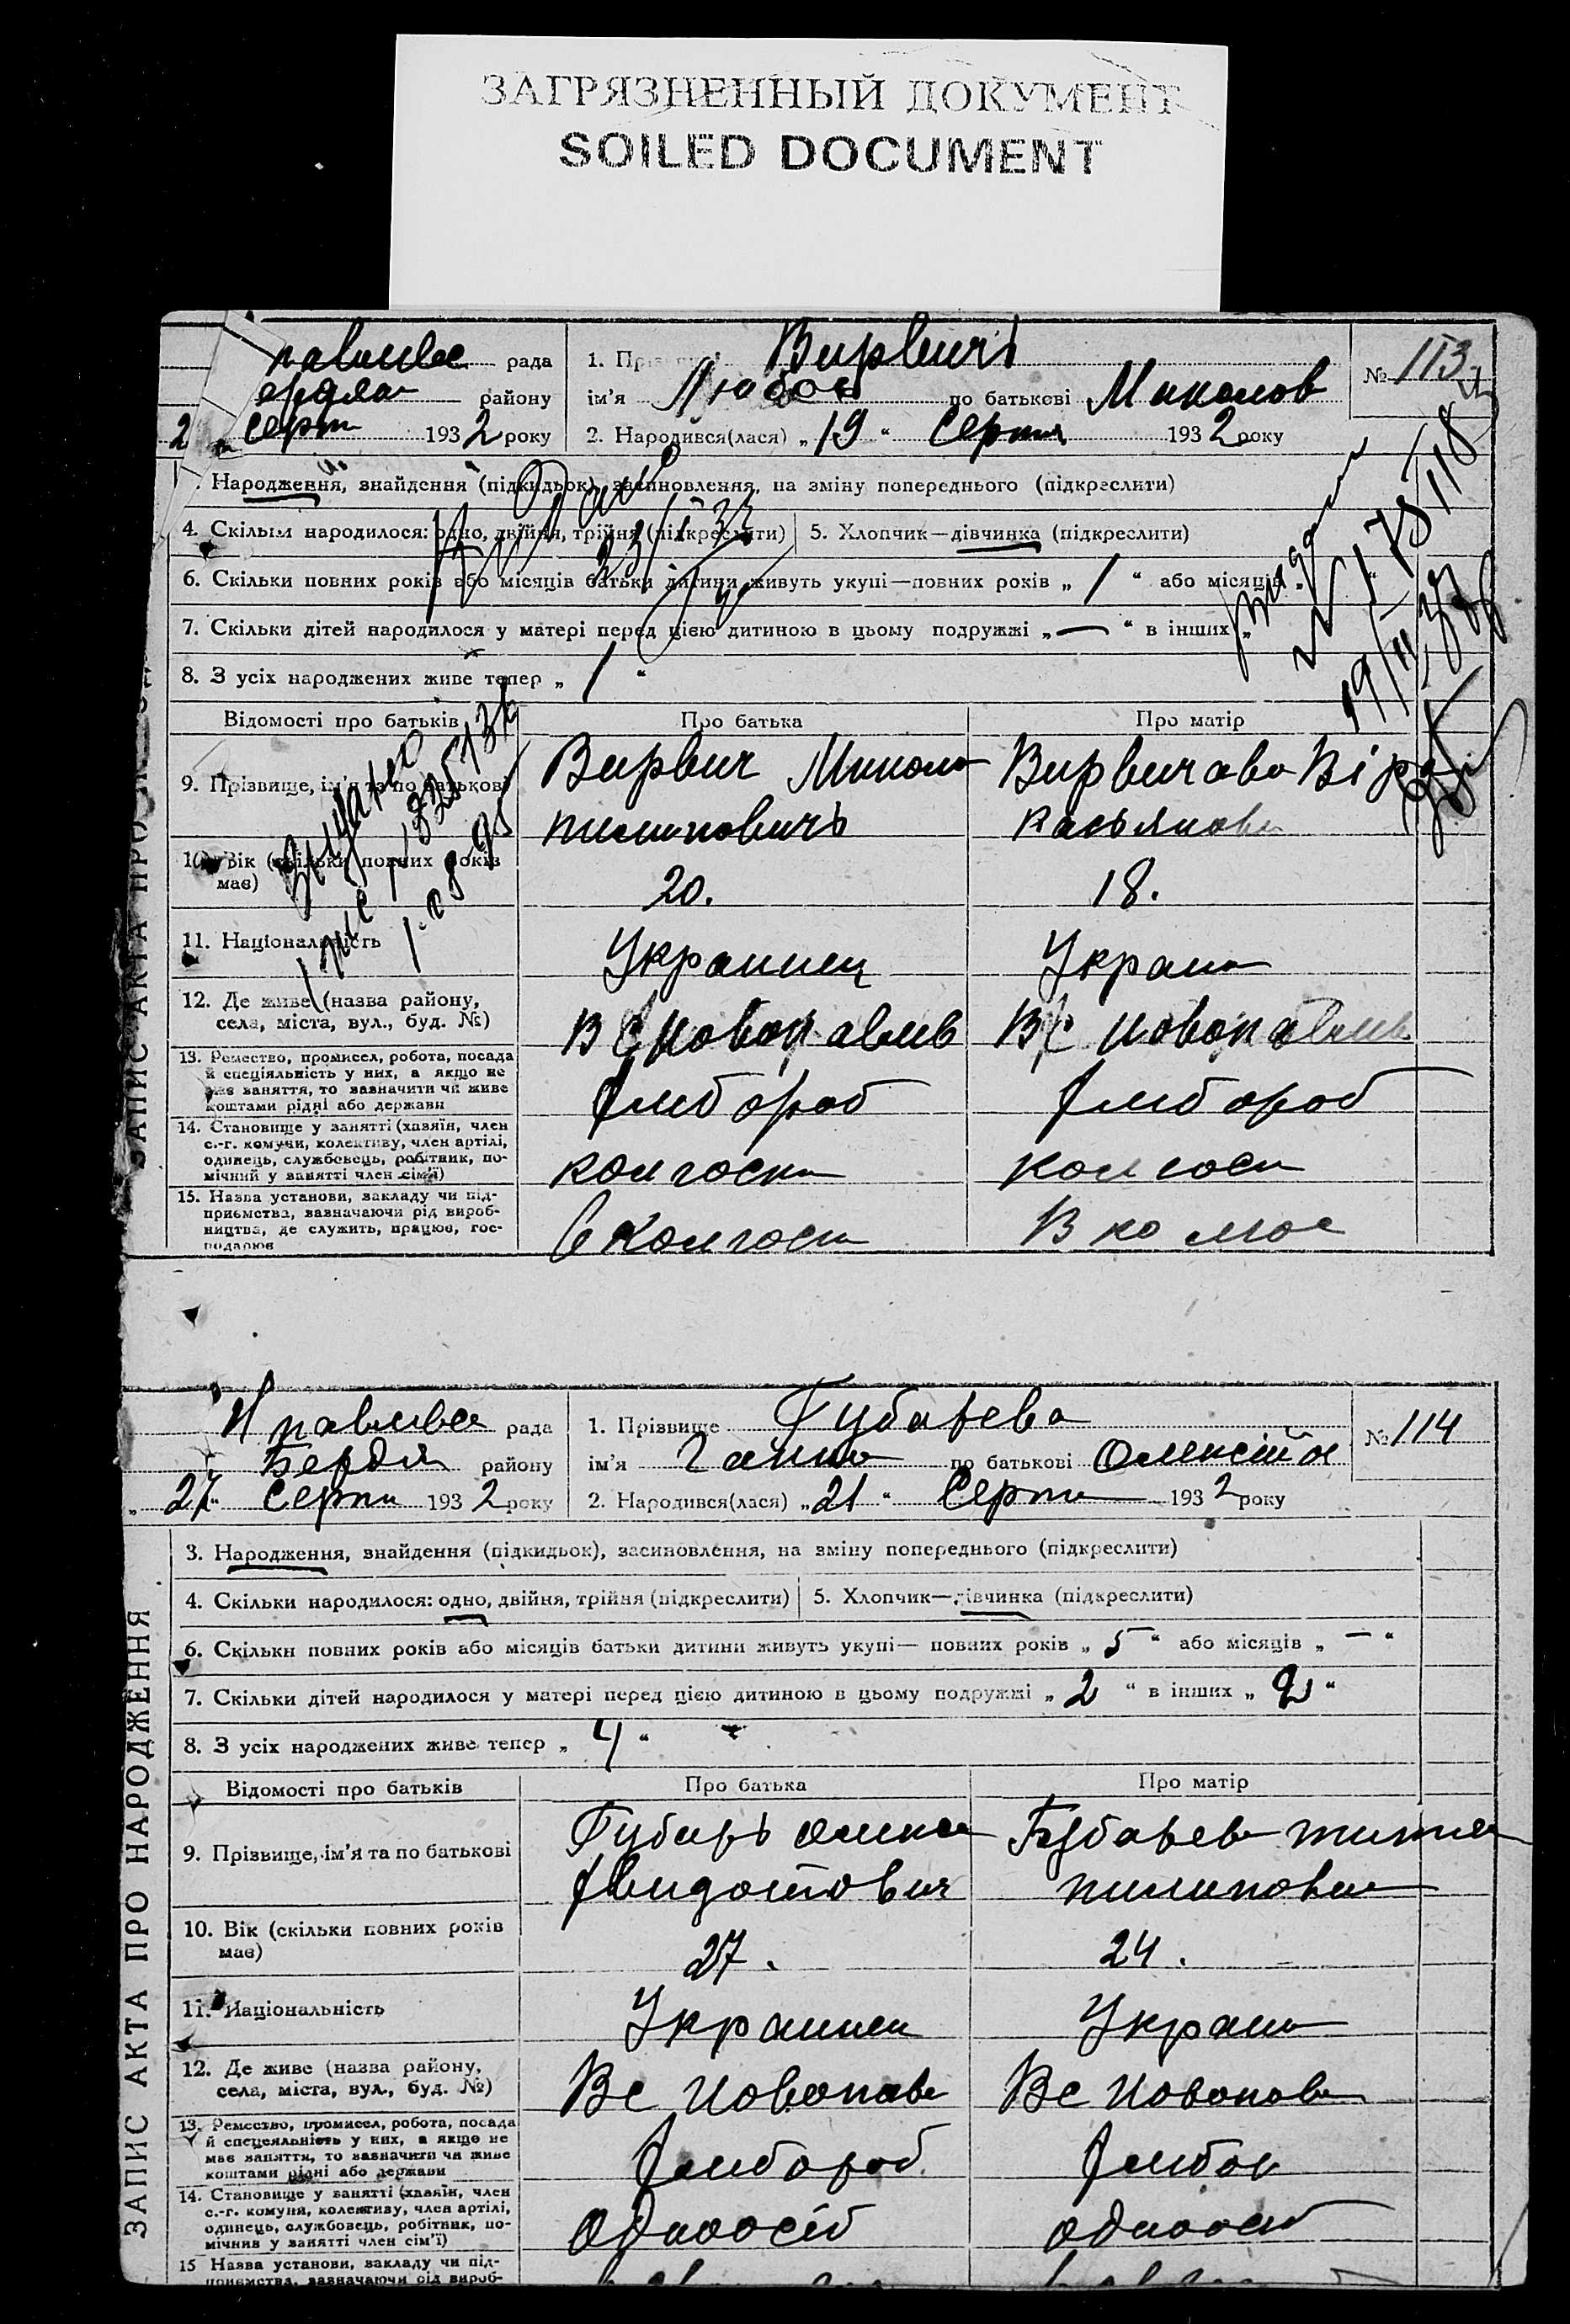 ЗАГРЯЗНЕННЫЙ ДОКУМЕНТ
SOILED DOCUMENT
павливс рада
району
2 серп 1932 року
1. Вирвич
ім'я Любов по батькові Миколов
2. Народився(лася) „19“ Серпня 1932 року
№ 113
Народження, знайдення (підкидьок), засиновлення, на зміну попереднього (підкреслити)
4. Скільки народилося: одно, двійня, трійня (підкреслити) 5. Хлопчик—дівчинка (підкреслити)
6. Скільки повних років або місяців батьки дитини живуть укупі—повних років „1“ або місяців
7. Скільки дітей народилося у матері перед цією дитиною в цьому подружжі „—“ в інших „
8. З усіх народжених живе тепер „1“
Відомості про батьків Про батька Про матір
9. Прізвище, ім'я та по батькові Вирвич Микола Вирвичава Віра
пилиповичь Касьянов
10. Вік (скільки повних років має) 20. 18.
11. Національність Украинец Украин
12. Де живе (назва району, села, міста, вул., буд. №) В С Новопавлив В С Новопавлив
13. Ремество, промисел, робота, посада
й спеціяльність у них, а якщо не
має заняття, то зазначити чи живе
коштами рідні або держави
хлибороб хлибороб
14. Становище у занятті (хазяїн, член
с.-г. комуни, колективу, член артілі,
одинець, службовець, робітник, по-
мічний у занятті член сім'ї)
колгосп колгосп
15. Назва установи, закладу чи під-
приємства, зазначаючи рід вироб-
ництва, де служить, працює, гос-
подарює
в колгосп
ЗАПИС АКТА ПРО
Н павливс рада
Бердян району
„27“ Серпн 1932 року
1. Прізвище Губарева
ім'я Ганна по батькові Олексійов
2. Народився(лася) „21“ Серпн 1932 року
№ 114
3. Народження, знайдення (підкидьок), засиновлення, на зміну попереднього (підкреслити)
4. Скільки народилося: одно, двійня, трійня (підкреслити) 5. Хлопчик—дівчинка (підкреслити)
6. Скільки повних років або місяців батьки дитини живуть укупі— повних років „5“ або місяців „—“
7. Скільки дітей народилося у матері перед цією дитиною в цьому подружжі „2“ в інших „2“
8. З усіх народжених живе тепер „4“
Відомості про батьків Про батька Про матір
9. Прізвище, ім'я та по батькові Губарь Олекса Губарева
пилипов
10. Вік (скільки повних років має) 27. 24.
11. Національність Украинец Украин
12. Де живе (назва району, села, міста, вул., буд. №) В с Новопав В с Новопав
13. Ремество, промисел, робота, посада
й спеціяльність у них, а якщо не
має заняття, то зазначити чи живе
коштами рідні або держави
хлибороб хлибор
14. Становище у занятті (хазяїн, член
с.-г. комуни, колективу, член артілі,
одинець, службовець, робітник, по-
мічний у занятті член сім'ї)
одноосіб одноосіб
15 Назва установи, закладу чи під-
приємства, зазначаючи рід вироб-
ЗАПИС АКТА ПРО НАРОДЖЕННЯ